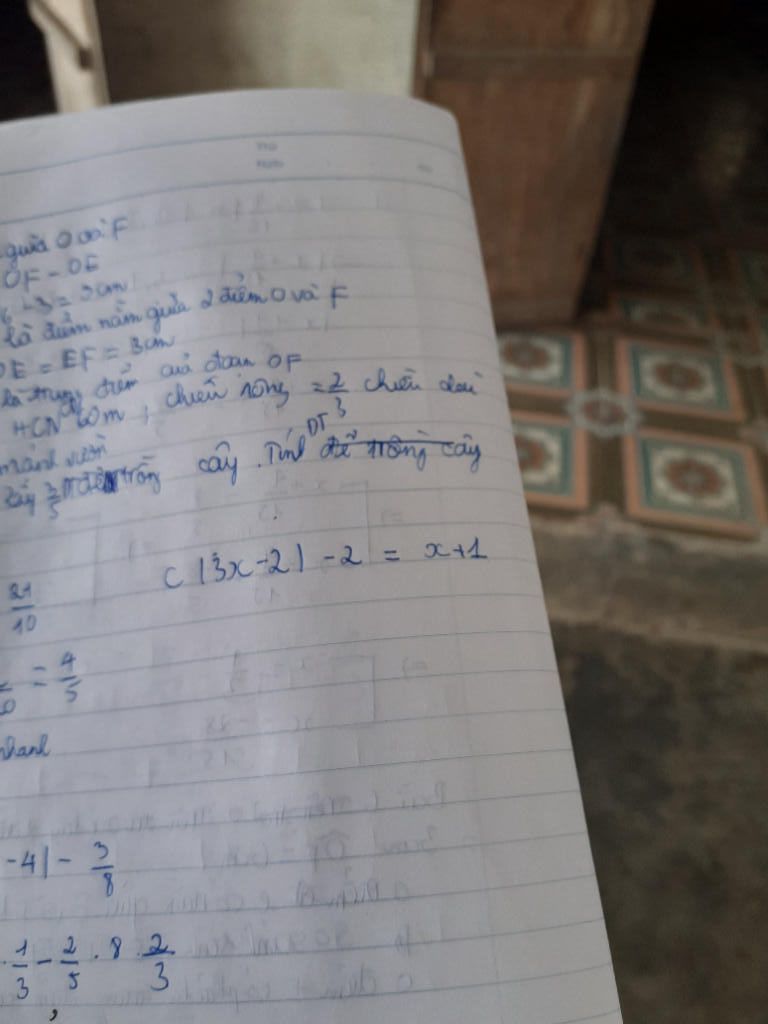 giữa O và F
OF - OE
6 - 3 = 3cm
là điểm nằm giữa 2 điểm O và F
OE = EF = 3cm
là trung điểm của đoạn OF
HCN 60m, chiều rộng = 2/3 chiều dài
mảnh vườn
lấy 3/5 DT để trồng cây. Tính DT để trồng cây
c |3x-2| - 2 = x+1
21/10
= 4/5
nhanh
-4| - 3/8
. 1/3 - 2/5 . 8 . 2/3